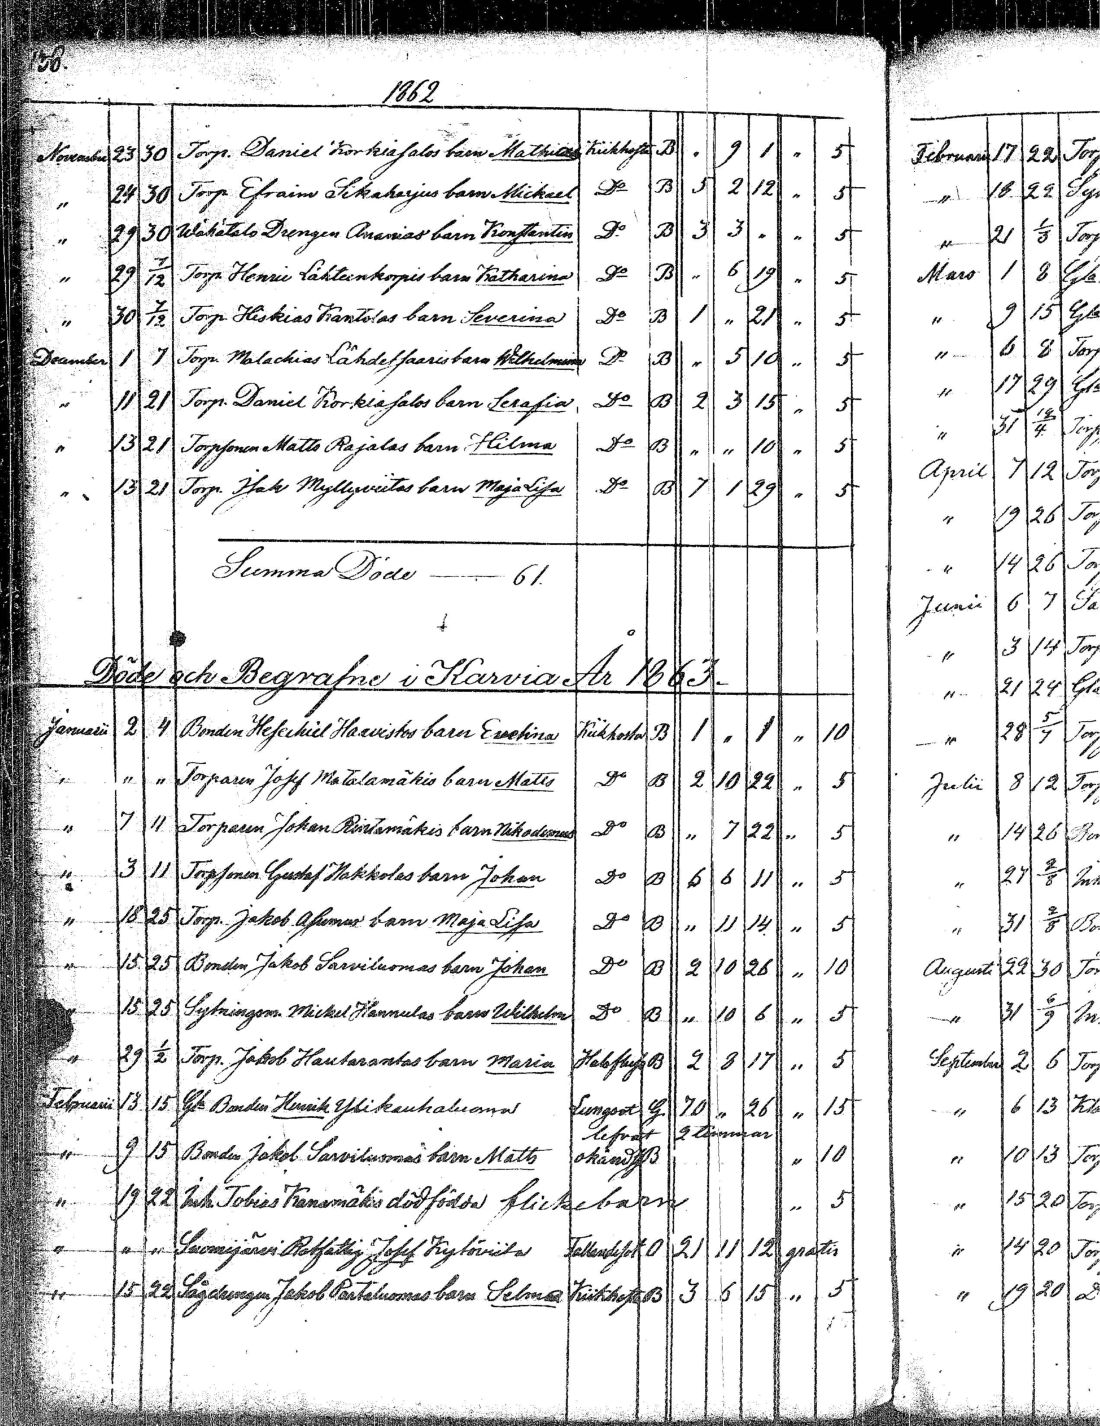 136.
1862
November 23 30 Torp. Daniel Korkiasalos barn Mathilda Kikhosta B „ 9 1 „ 5
„ 24 30 Torp Efraim Sikaharjus barn Mickael Do B 5 2 12 „ 5
„ 29 30 Drengen Ananias barn Konstantin Do B 3 3 „ „ 5
„ 29 7/12 Torp Henric Lähteenkorpis barn Katharina Do B „ 6 19 „ 5
„ 30 7/12 Torp Hiskias Kantolas barn Severina Do B 1 „ 21 „ 5
December 1 7 Torp. Malachias Lähdessaaris barn Wilhelmina Do B „ 5 10 „ 5
„ 11 21 Torp. Daniel Korkiasalos barn Serafia Do B 2 3 15 „ 5
„ 13 21 Torpsonen Matts Rajalas barn Hilma Do B „ „ 10 „ 5
„ 13 21 Torp. Isak Myllyviitas barn Maja Lisa Do B 7 1 29 „ 5
Summa Döde —— 61.
Döde och Begrafne i Karvia År 1863.
Januarii 2 4 Bonden Hesechiel Haavistos barn Evelina Kikhosta B 1 „ 1 „ 10
„ „ „ Torparen Josef Matalamäkis barn Matts Do B 2 10 22 „ 5
„ 7 11 Torparen Johan Rintamäkis barn Nikodemus Do B „ 7 22 „ 5
„ 3 11 Torpsonen Gustaf Hakkolas barn Johan Do B 6 6 11 „ 5
„ 18 25 Torp. Jakob Asumas barn Maja Lisa Do B „ 11 14 „ 5
„ 15 25 Bonden Jakob Sarviluomas barn Johan Do B 2 10 26 „ 10
„ 15 25 Sytningsm. Mickel Hannulas barn Wilhelm Do B „ 10 6 „ 5
„ 29 1/2 Torp. Jakob Hautarantas barn Maria B 2 8 17 „ 5
Februarii 13 15 Gla Bonden Henrik Ylikauhaluoma Lungsot G 70 „ 26 „ 15
„ 9 15 Bonden Jakob Sarviluomas barn Matts okänd B lefvat 2 timmar „ 10
„ 19 22 Inh. Tobias Kanamäkis dödfödda flickebarn „ 5
„ „ „ Suomijärvi Rotfattig Josef Kylöviita Fallandesot O 21 11 12 gratis
„ 15 22 Sågdrengen Jakob Partaluomas barn Selma Kikhosta B 3 6 15 „ 5
Februarii 17 22 Torp
„ 18 22
„ 21 1/3 Torp
Mars 1 8 Gla
„ 9 15 Gla
„ 6 8 Torp
„ 17 29 Gla
„ 31 12/4 Torp
April 7 12 Torp
„ 19 26 Tor
„ 14 26 Tor
Junii 6 7
„ 3 14 Torp
„ 21 24 Gla
„ 28 5/7 Torp
Julii 8 12 Torp
„ 14 26 Bon
„ 27 2/8 Inh
„ 31 2/8 Bo
Augusti 22 30 Tor
„ 31 6/9 In
September 2 6 Torp
„ 6 13
„ 10 13 Torp
„ 15 20 Torp
„ 14 20 Torp
„ 19 20 D